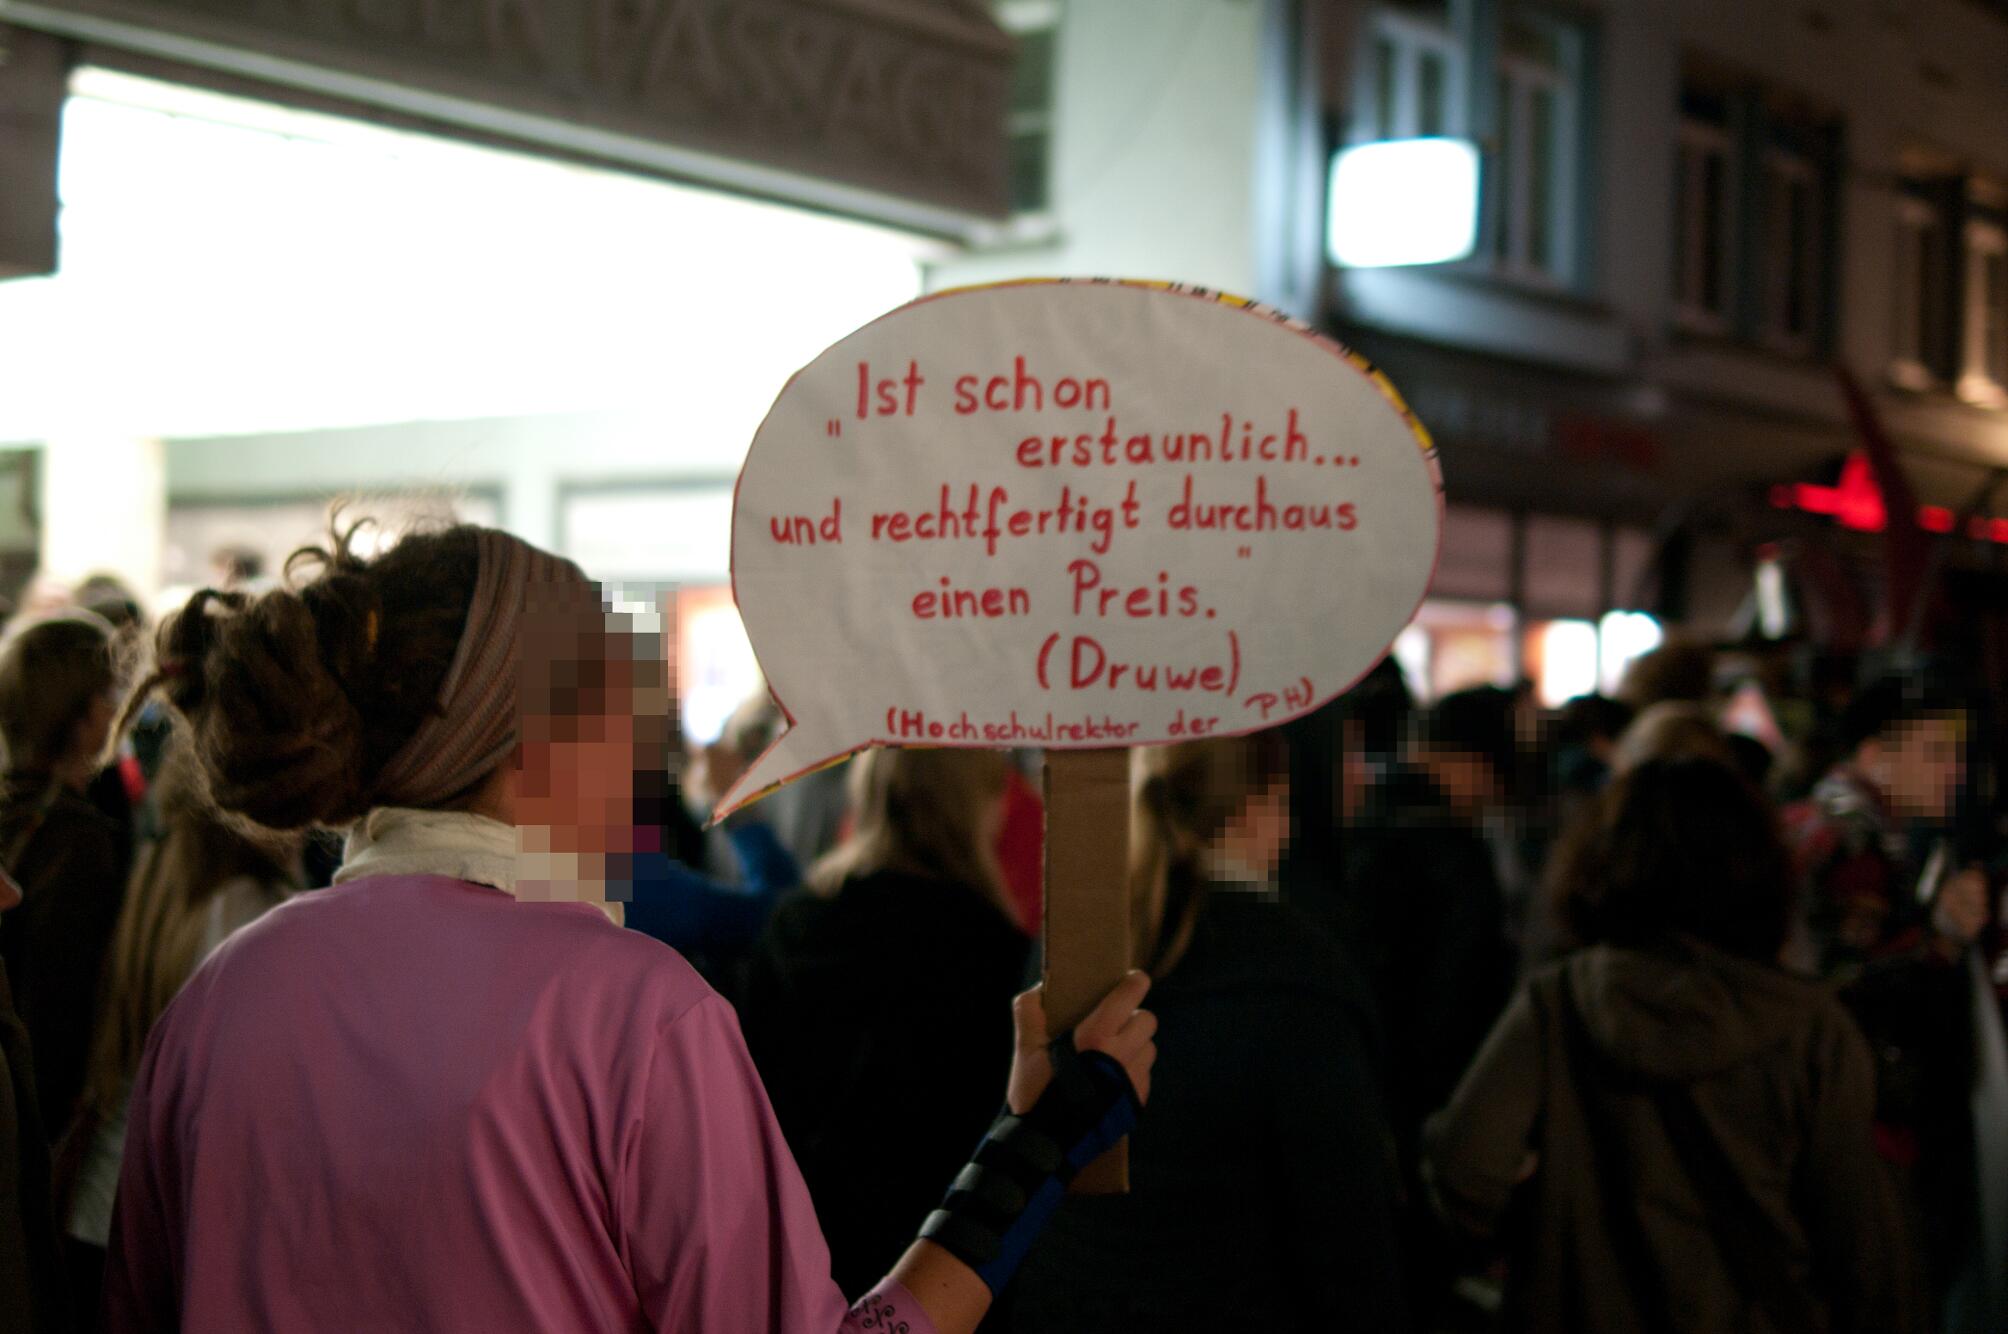 PASSAGE
"Ist schon
erstaunlich...
und rechtfertigt durchaus
einen Preis."
(Druwe)
(Hochschulrektor der PH)